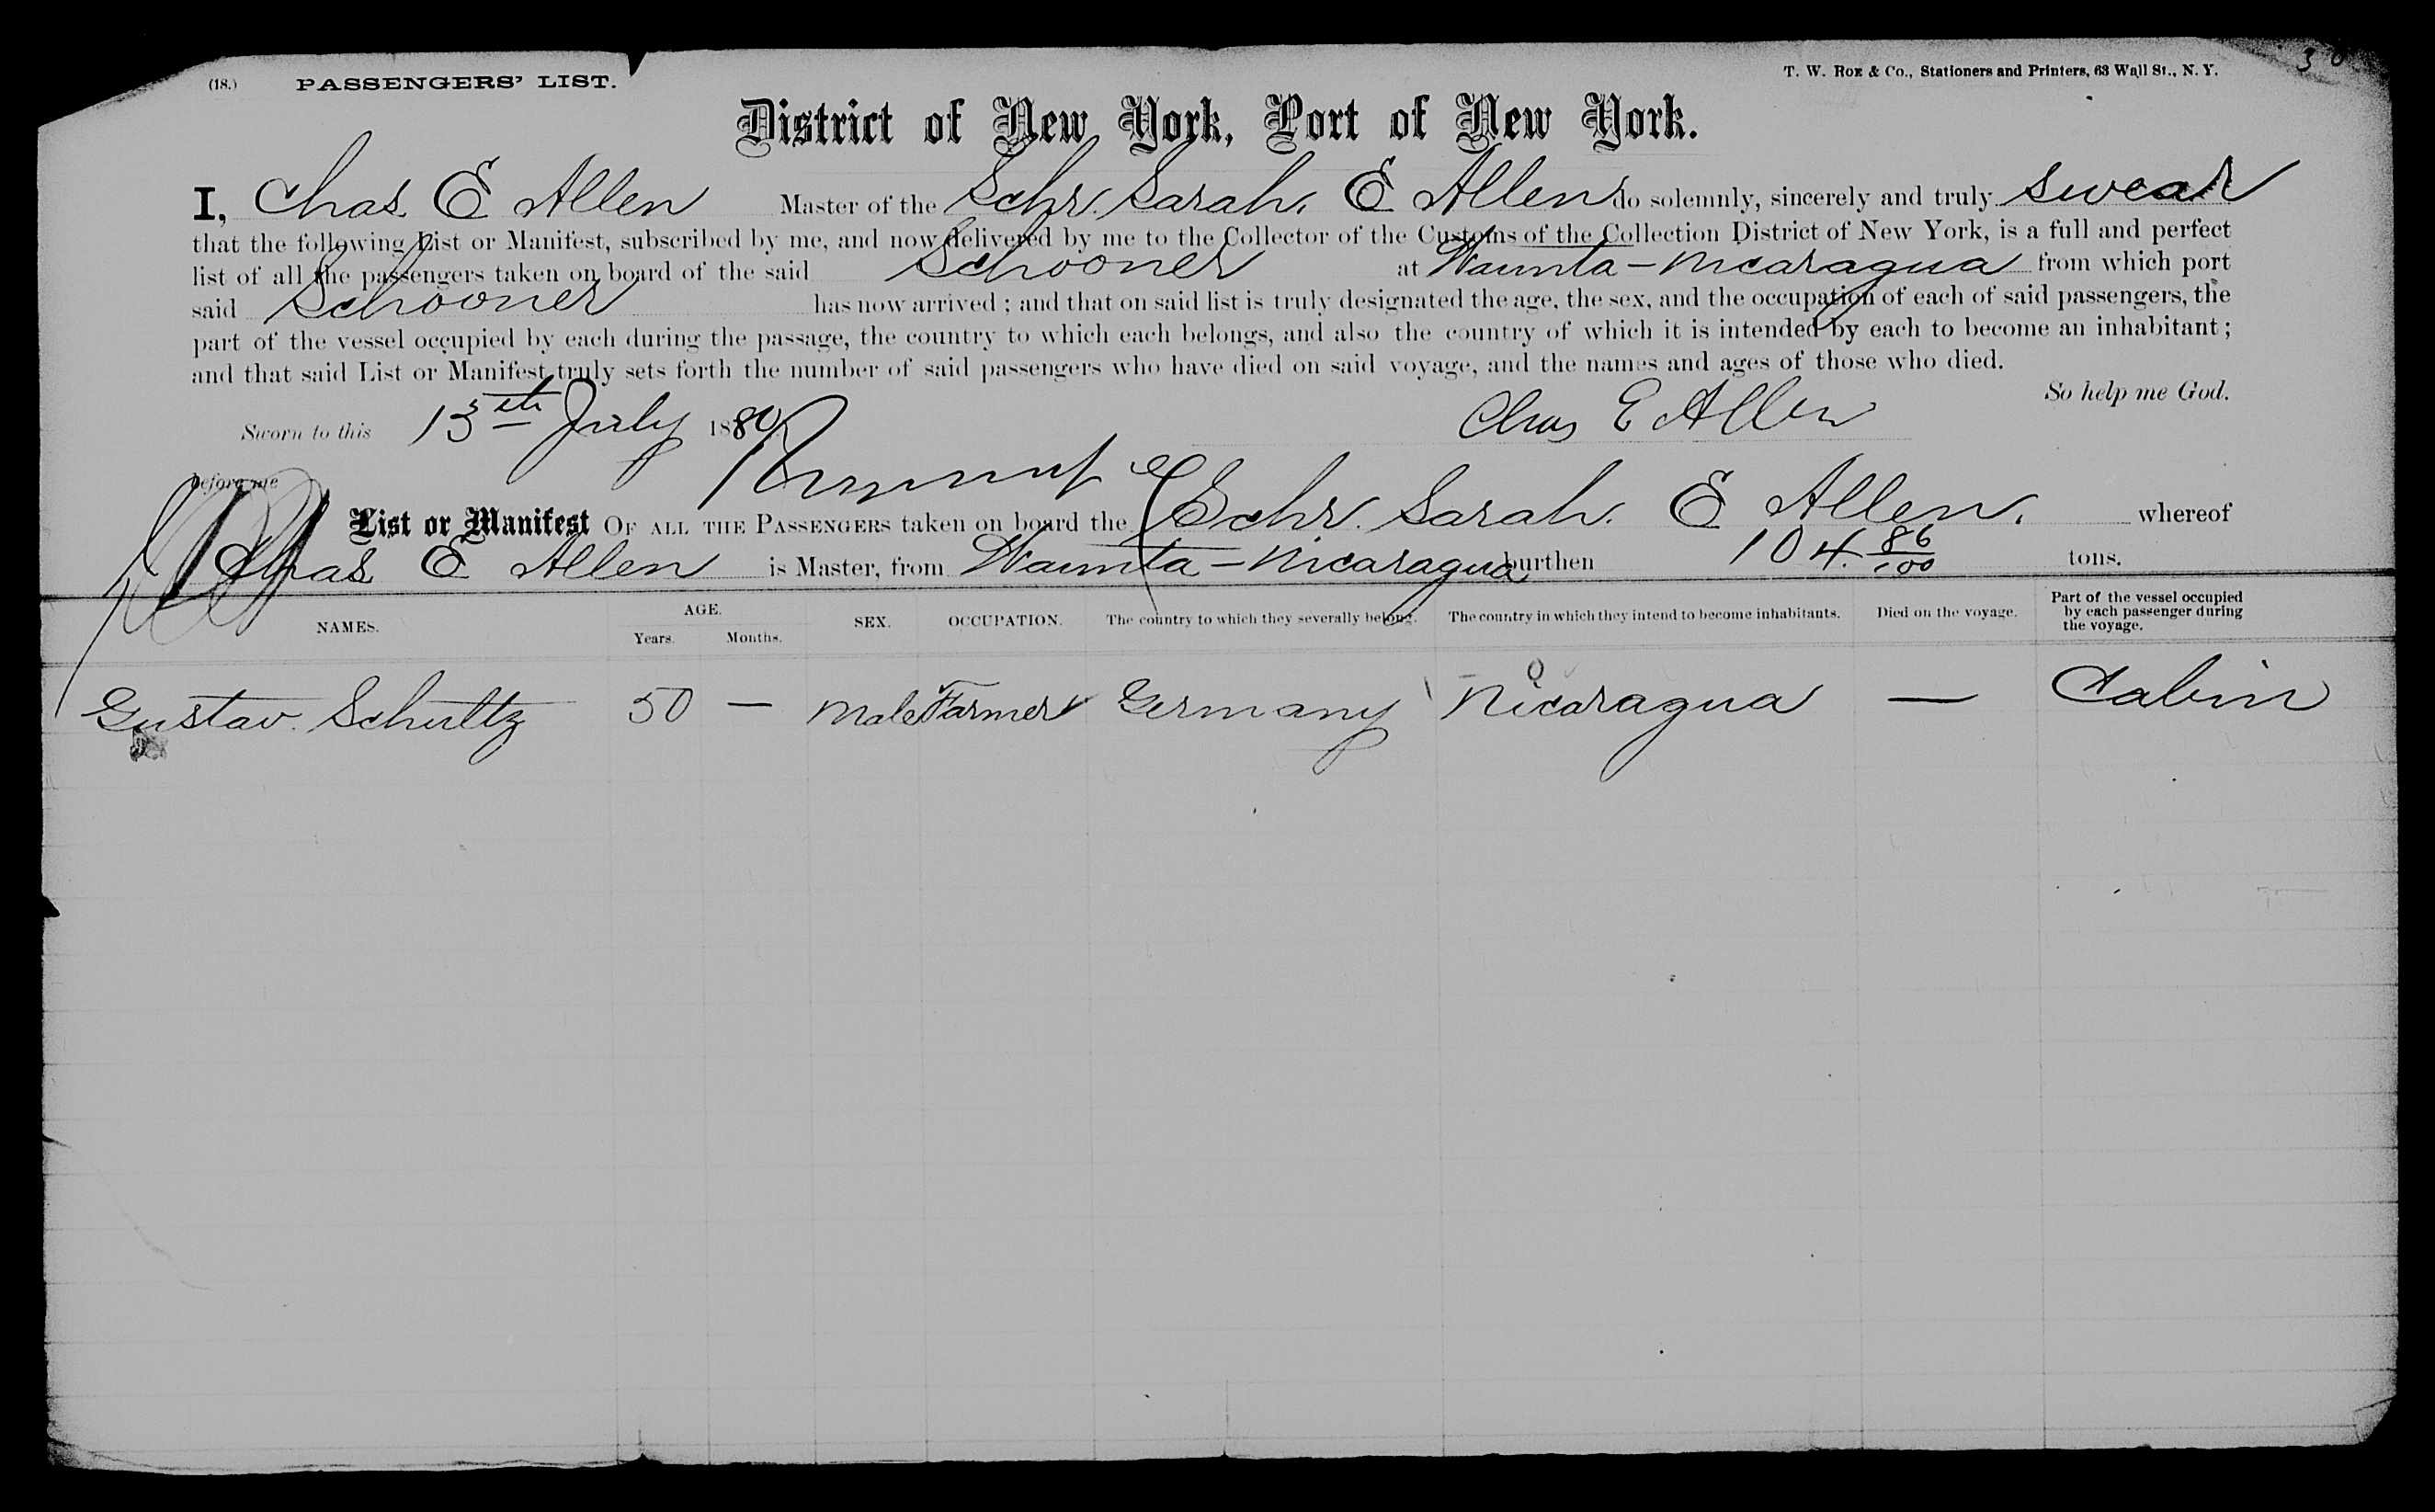 (18.) PASSENGERS' LIST. T. W. Roe & Co., Stationers and Printers, 63 Wall St., N. Y.
District of New York, Port of New York.
I, Chas E Allen Master of the Schr. Sarah. E Allen do solemnly, sincerely and truly swear
that the following List or Manifest, subscribed by me, and now delivered by me to the Collector of the Customs of the Collection District of New York, is a full and perfect
list of all the passengers taken on board of the said Schooner at Waunta - Nicaragua from which port
said Schooner has now arrived; and that on said list is truly designated the age, the sex, and the occupation of each of said passengers, the
part of the vessel occupied by each during the passage, the country to which each belongs, and also the country of which it is intended by each to become an inhabitant;
and that said List or Manifest truly sets forth the number of said passengers who have died on said voyage, and the names and ages of those who died.
So help me God.
Sworn to this 13th July 1880 Chas E Allen
before me
List or Manifest OF ALL THE PASSENGERS taken on board the Schr. Sarah. E Allen. whereof
Chas E Allen is Master, from Waunta - Nicaragua burthen 104. 86/100 tons.
NAMES. AGE. Years. Months. SEX. OCCUPATION. The country to which they severally belong. The country in which they intend to become inhabitants. Died on the voyage. Part of the vessel occupied by each passenger during the voyage.
Gustav. Schultz 50 — Male Farmer Germany Nicaragua — Cabin